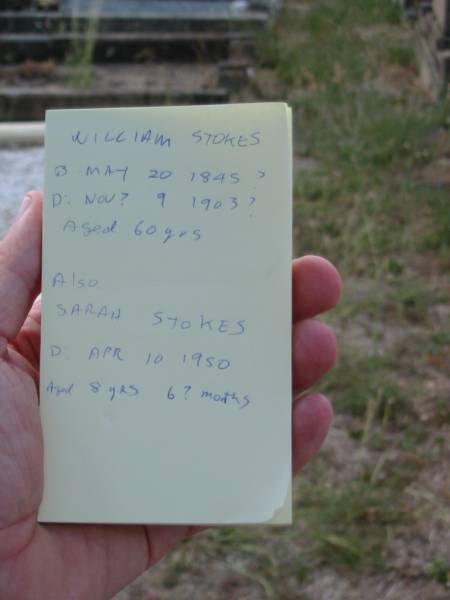 WILLIAM STOKES
B: MAY 20 1845 ?
D: NOV? 9 1903?
Aged 60 yrs
Also
SARAH STOKES
D: APR 10 1950
Aged 8 yrs 6? months